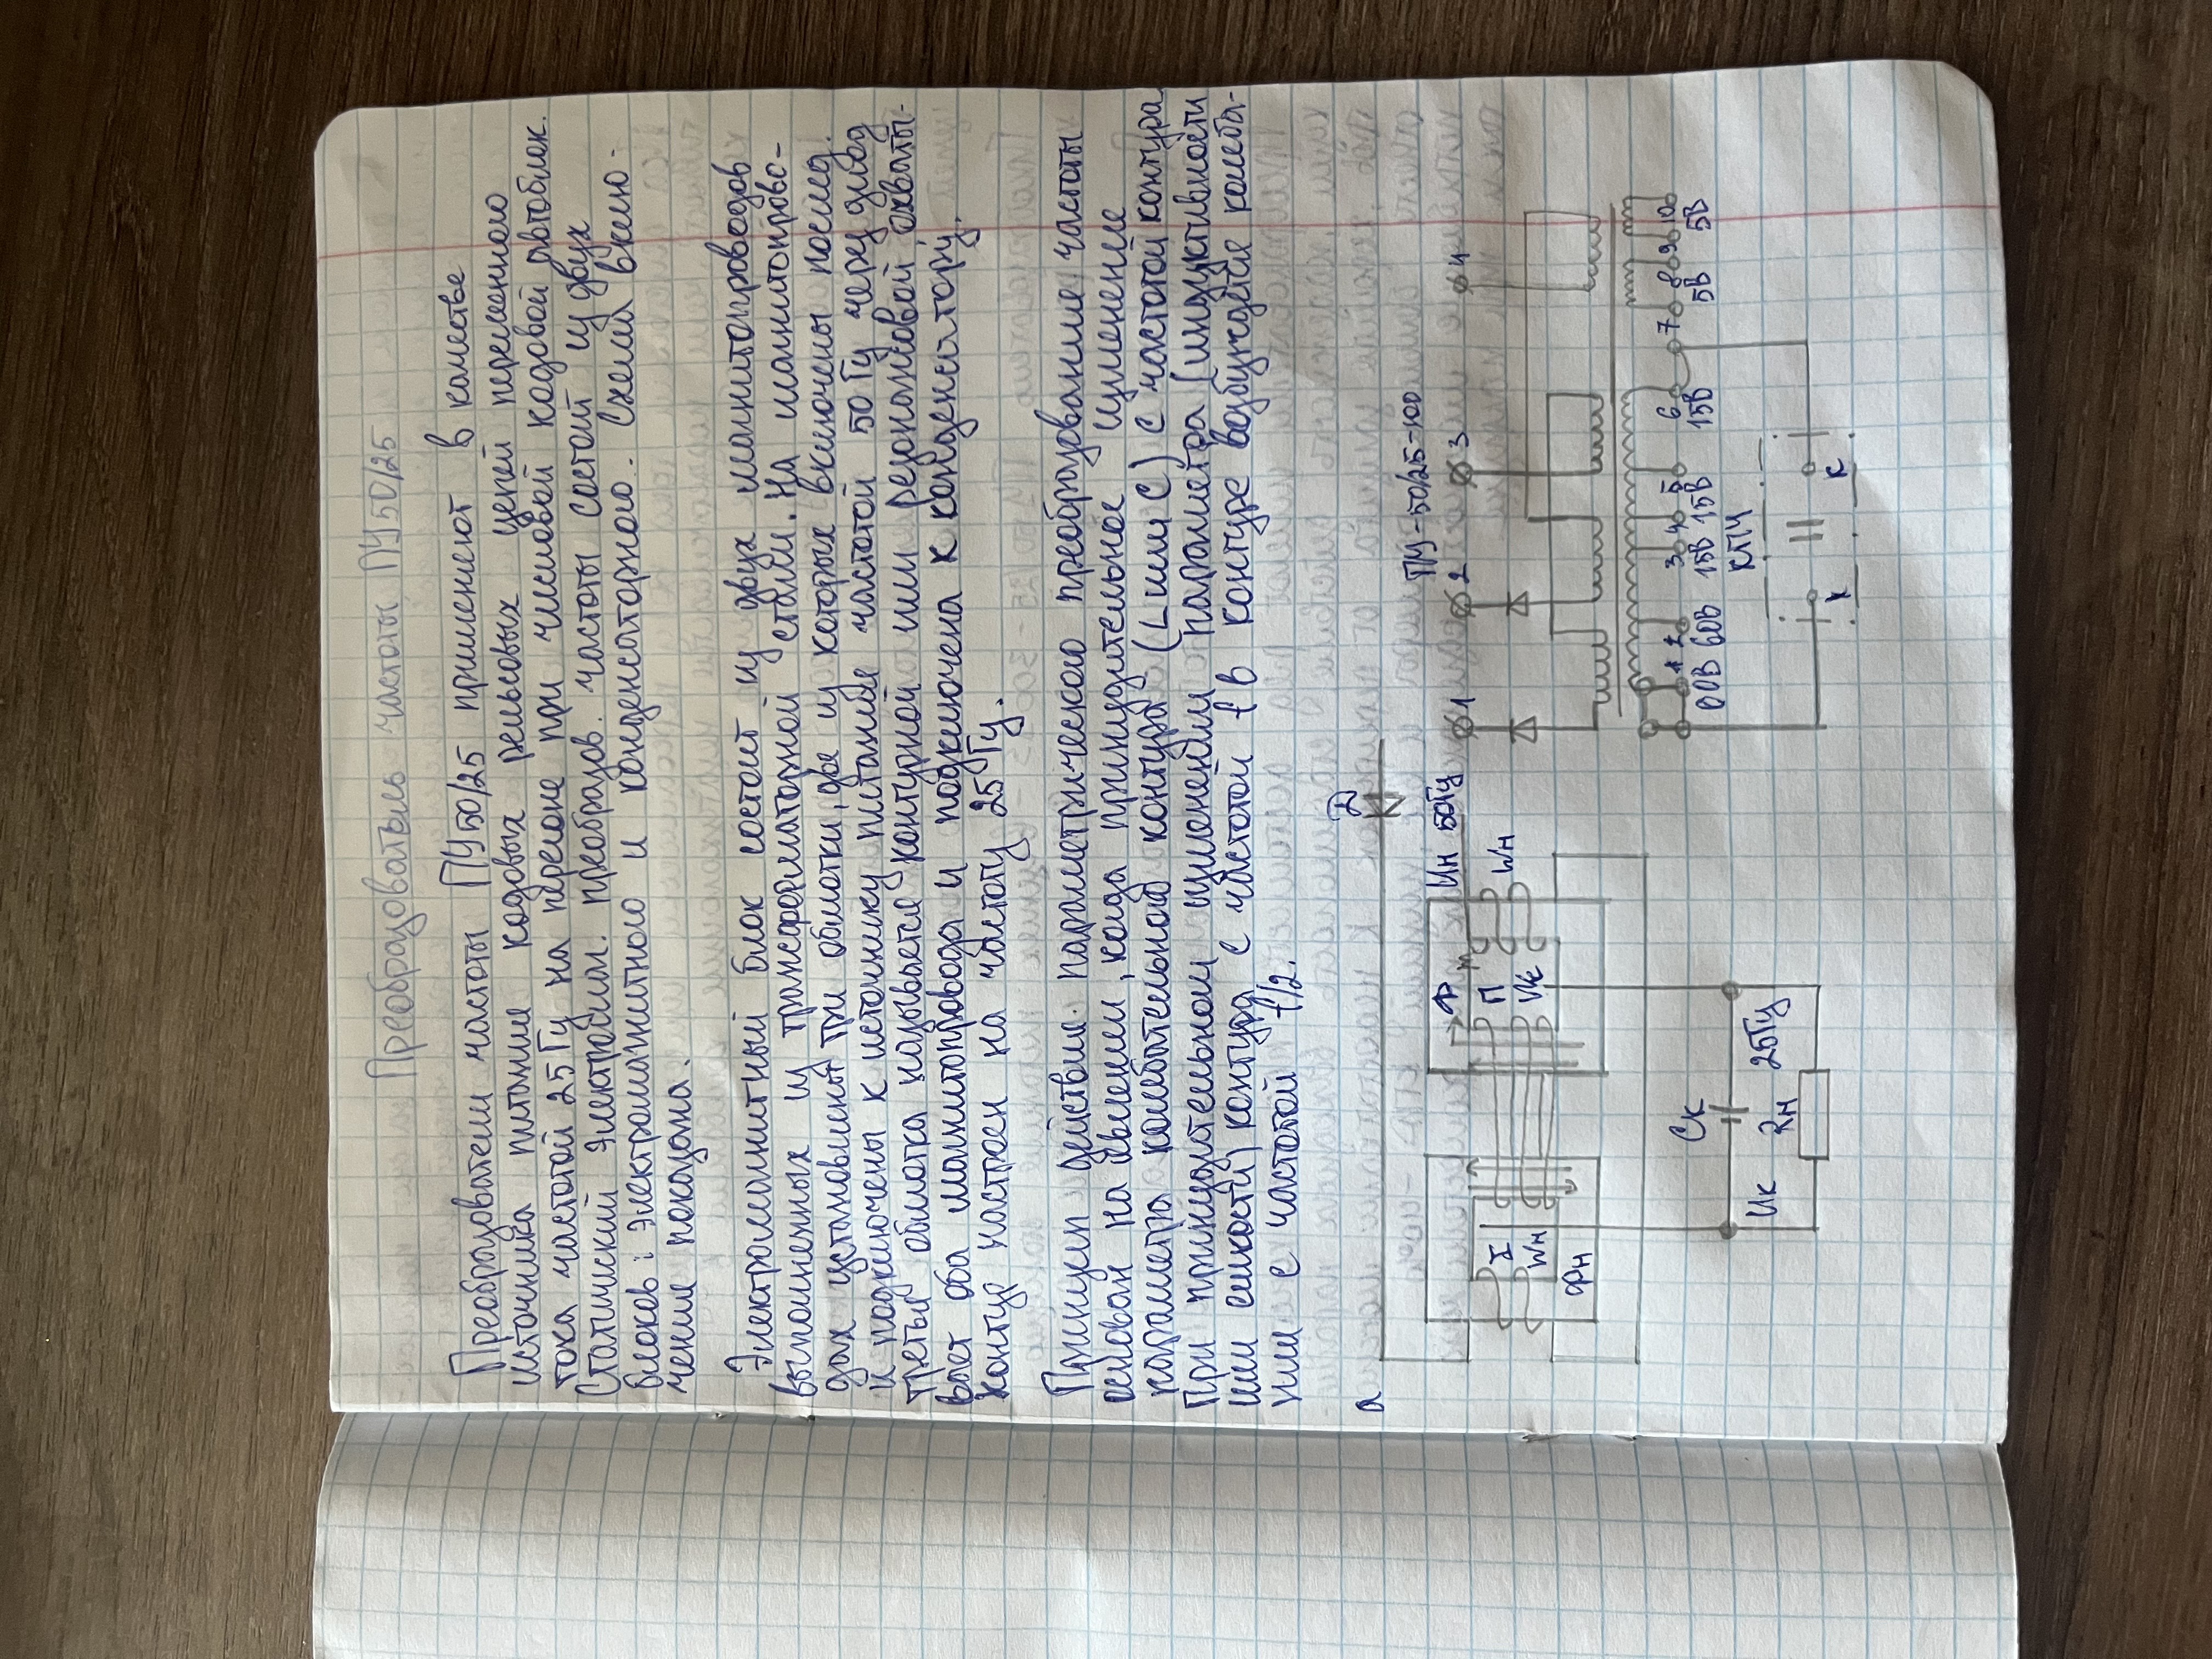 Преобразователь частоты ПЧ50/25
Преобразователи частоты ПЧ50/25 применяют в качестве
источника питания кодовых рельсовых цепей переменного
тока частотой 25 Гц на перегоне при числовой кодовой автоблок.
Статический электромагн. преобразов. частоты состоит из двух
блоков: электромагнитного и конденсаторного. Схема вклю-
чения показана.
Электромагнитный блок состоит из двух магнитопроводов
выполненных из трансформаторной стали. На магнитопрово-
дах установлены три обмотки, две из которых включены послед.
и подключены к источнику питания частотой 50 Гц через диод
третья обмотка называется контурной или резонансовой охваты-
вает оба магнитопровода и подключена к конденсатору.
Контур настроен на частоту 25 Гц.
Принцип действия параметрического преобразование частоты
основан на явлении, когда принудительное изменение
параметра колебательного контура (L или C) с частотой контура
При принудительном изменении параметра (индуктивности
или емкости) контура с частотой f в контуре возбуждается колеба-
ния с частотой f/2.
а
Д
Uн 50Гц
Ф
Wн
П
Wк
I
Wн
Фн
Cк
Uк
25Гц
Rн
ПЧ-50/25-100
1 2 3 4
1 2 3 4 5 6 7 8 9 10
60В 15В 15В 15В 5В 5В
КПЧ
К К